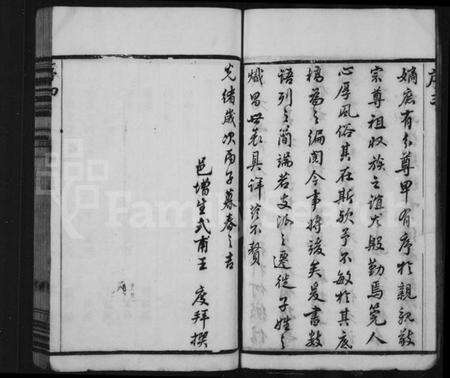 序三
嫡庶有分尊卑有序於親親敬
宗尊祖收族之誼尤殷勤焉筦人
心厚風俗其在斯欤予不敏於其底
稿為之編閱今事將竣矣爰書数
語列之简端若支派之遷徙子姓之
熾昌世表具詳兹不贅
光緒歲次丙子暮春之吉
邑增生式甫王 度拜撰
序四
FamilySearch